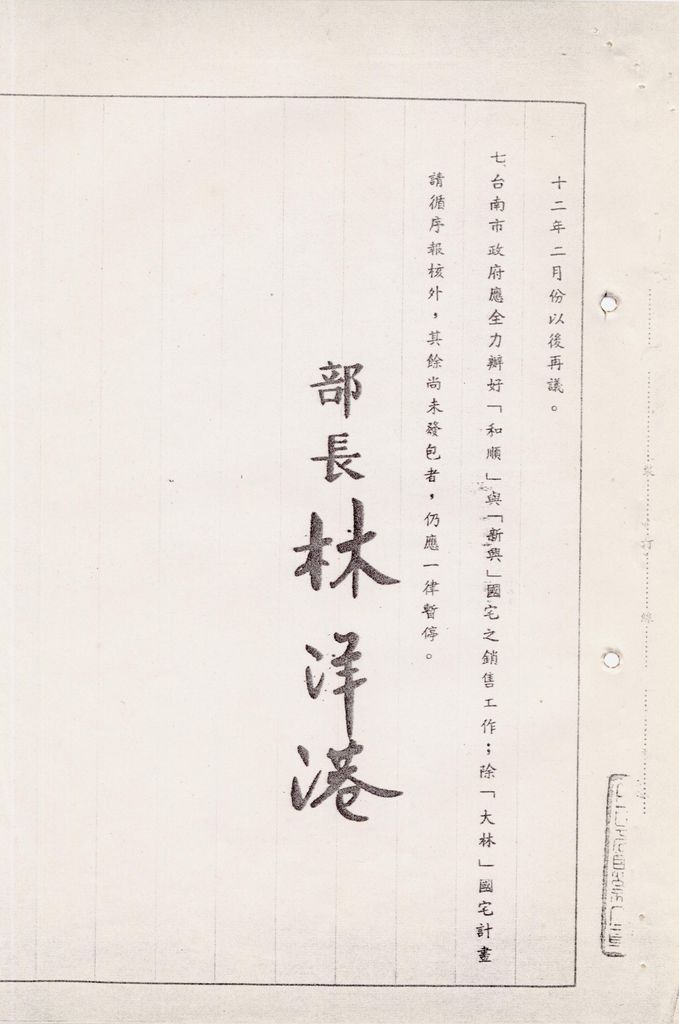 十二年二月份以後再議。
七台南市政府應全力辦好「和順」與「新興」國宅之銷售工作；除「大林」國宅計畫
請循序報核外，其餘尚未發包者，仍應一律暫停。
部長林洋港